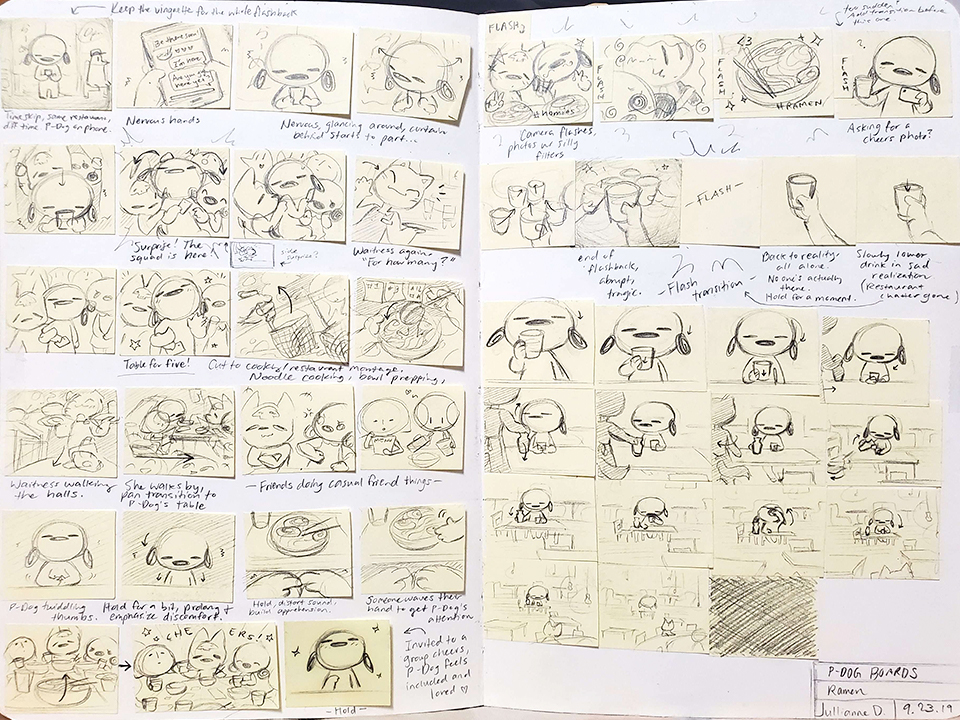 Keep the vingette for the whole flashback
Be there soon!
I'm here
Are you guys
here yet?
Time skip, same restaurant,
diff time. P-Dog on phone.
Nervous hands
Nervous, glancing around, curtain
behind starts to part...
"Surprise! The
squad is here"
side
surprise?
Waitress again
"For how many?"
Table for five!
Cut to cooking/restaurant montage.
Noodle cooking, bowl prepping,
Waitress walking
the halls.
She walks by,
pan transition to
P-Dog's table
- Friends doing casual friend things -
P-Dog twiddling
thumbs.
Hold for a bit, prolong +
emphasize discomfort.
Hold, distort sound,
build apprehension.
Someone waves their
hand to get P-Dog's
attention
CHEERS!
- Hold -
Invited to a
group cheers,
P-Dog feels
included and
loved ♡
FLASH
too sudden?
Add transition before
this one
#homies
FLASH
FLASH
<3
#RAMEN
FLASH
Camera flashes,
photos w/ silly
filters
Asking for a
cheers photo?
- FLASH -
end of
flashback,
abrupt,
tragic.
- Flash
transition -
Back to reality,
all alone.
No one's actually
there.
Hold for a moment.
Slowly lower
drink in sad
realization
(restaurant
chatter gone)
P-DOG BOARDS
Ramen
Julianne D.
9.23.19